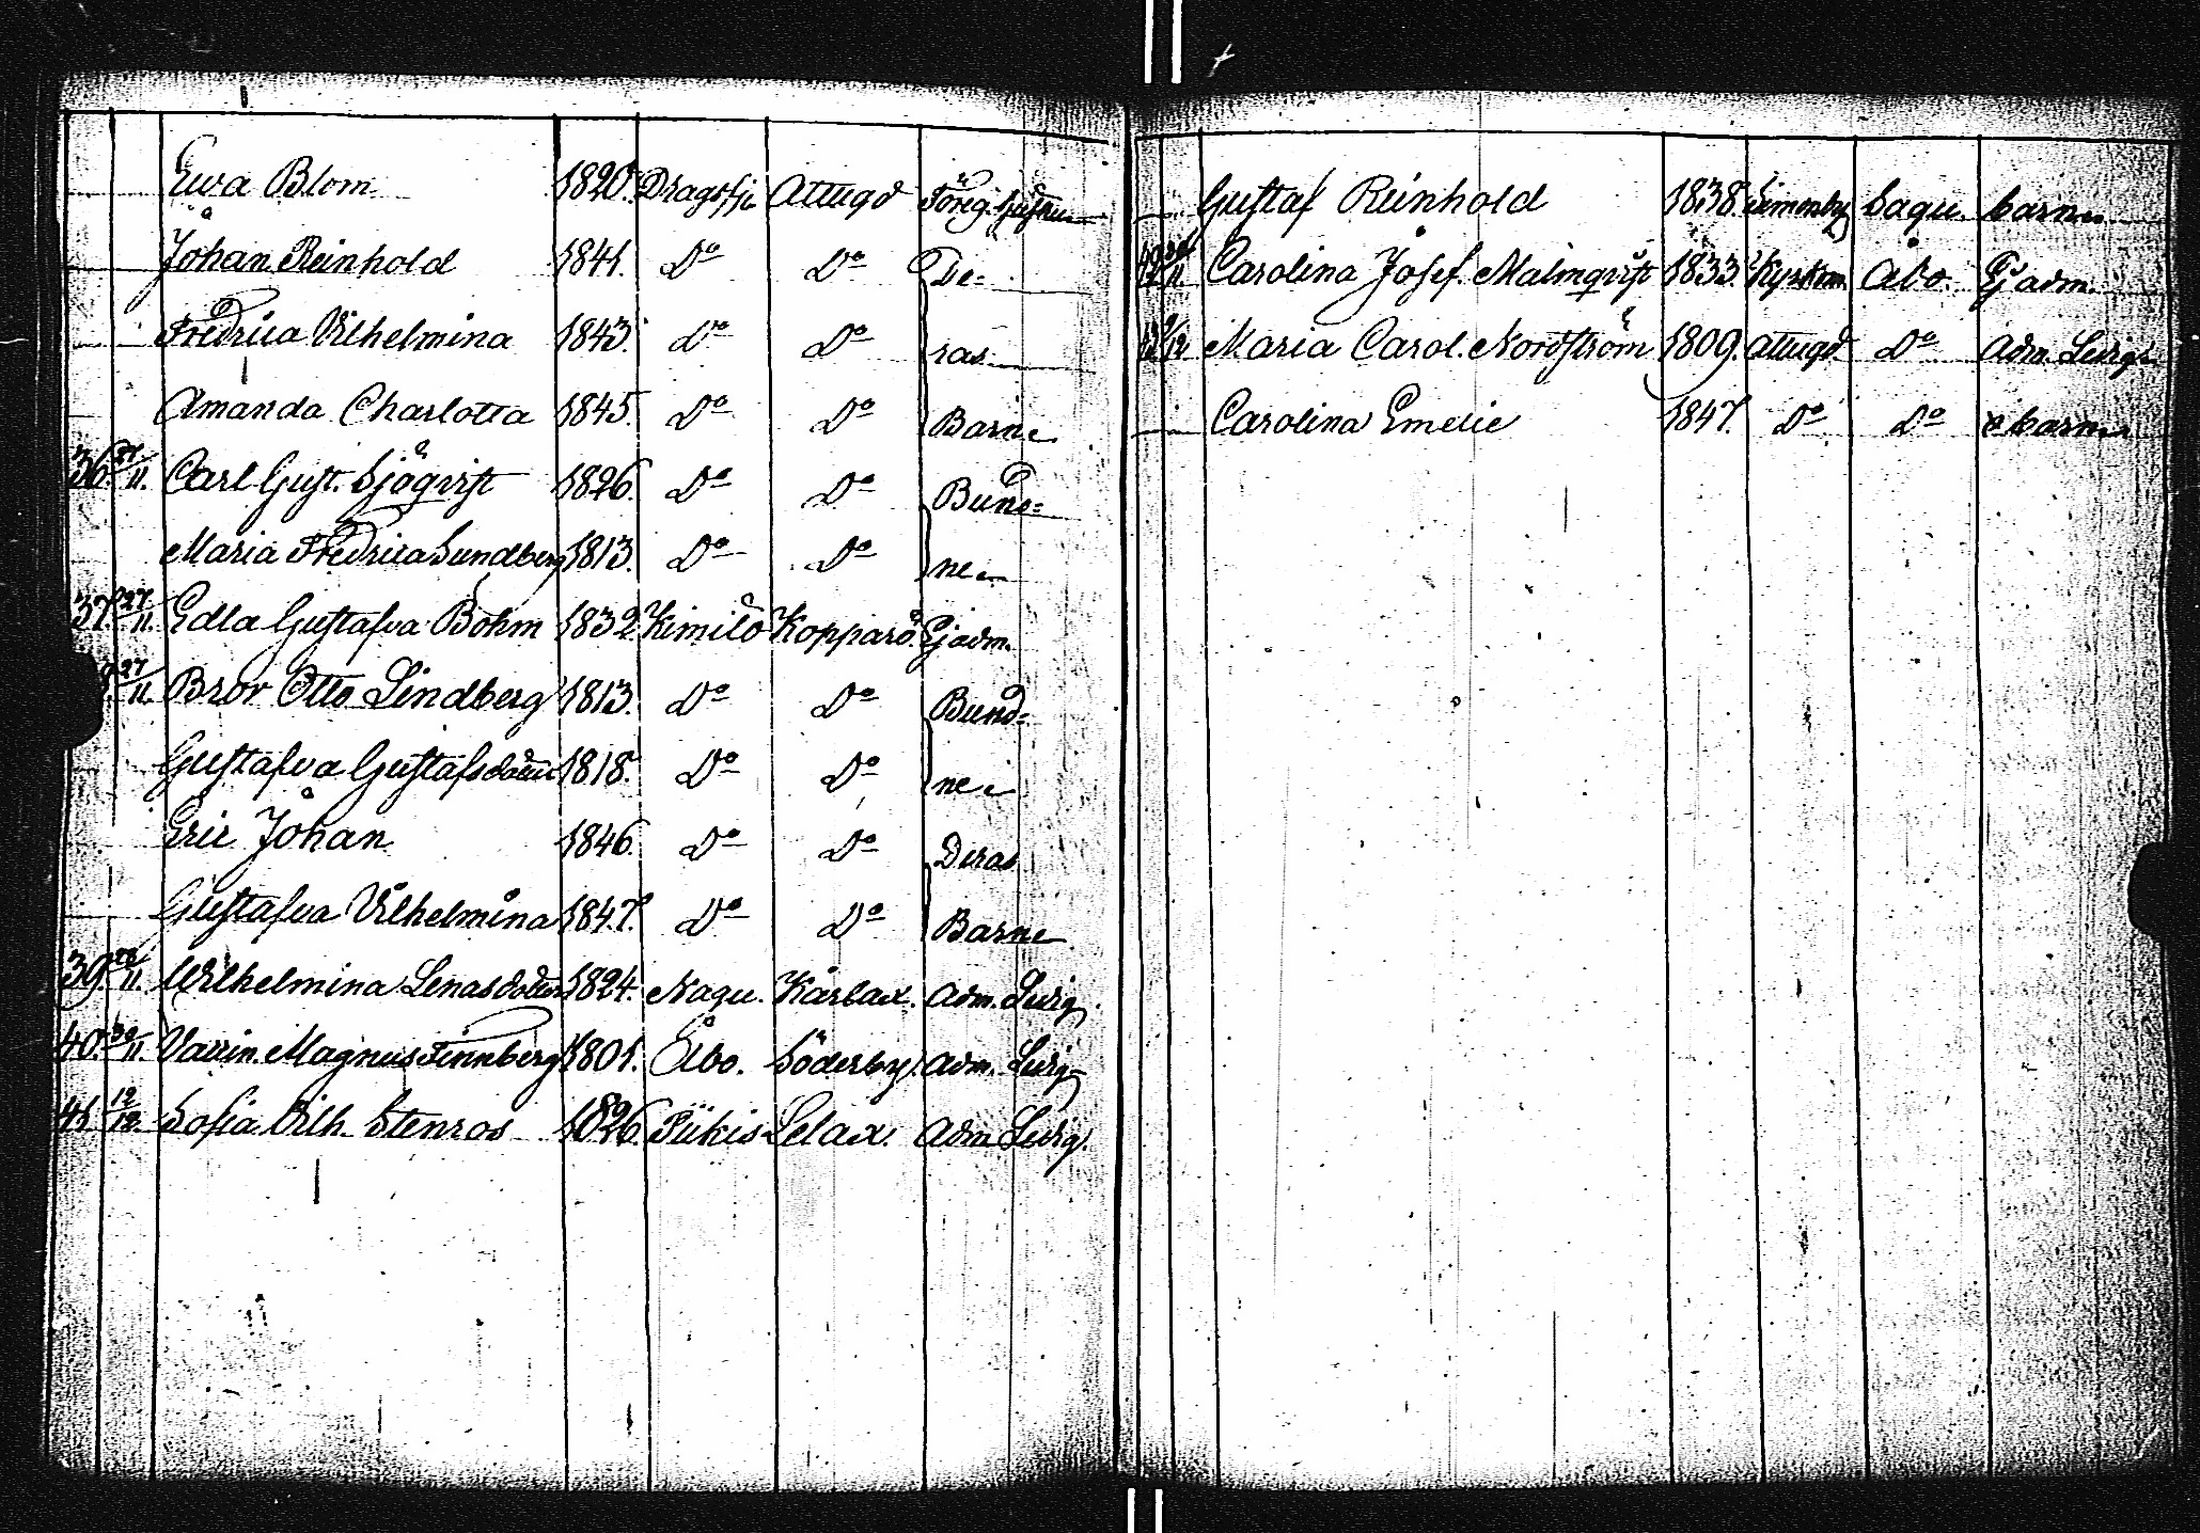 Ewa Blom 1820. Dragsfj. Attugd Föreg. hustru
Johan Reinhold 1841. Do Do De-
Fredrica Vilhelmina 1843. Do Do ras
Amanda Charlotta 1845. Do Do Barn
36. 27/11. Carl Gust. Sjöqvist 1826. Do Do Bund-
Maria Fredrica Sundberg 1813. Do Do ne
37. 27/11. Edla Gustafva Böhm 1832. Kimito Kopparö. Ej adm.
27/11. Bror Otto Lindberg 1813. Do Do Bund-
Gustafva Gustafsdotter 1818. Do Do ne
Eric Johan 1846. Do Do Deras
Gustafva Vilhelmina 1847. Do Do Barn
39. 28/11. Wilhelmina Lenasdotter 1824. Nagu. Kärlax. Adm. Ledig
40. 30/11. Magnus Finnberg 1801. Åbo. Söderby. Adm. Ledig
41 12/12 Sofia Vilh. Stenros 1826. Piikis Lelax. Adm Ledig.
Gustaf Reinhold 1838. Simonby Sagu. barn
Carolina Josef. Malmqvist 1833. Kyrkon Åbo. Ej adm.
Maria Carol. Nordström 1809. Attugd. Do Adm. Ledig
Carolina Emelie 1847. Do Do barn